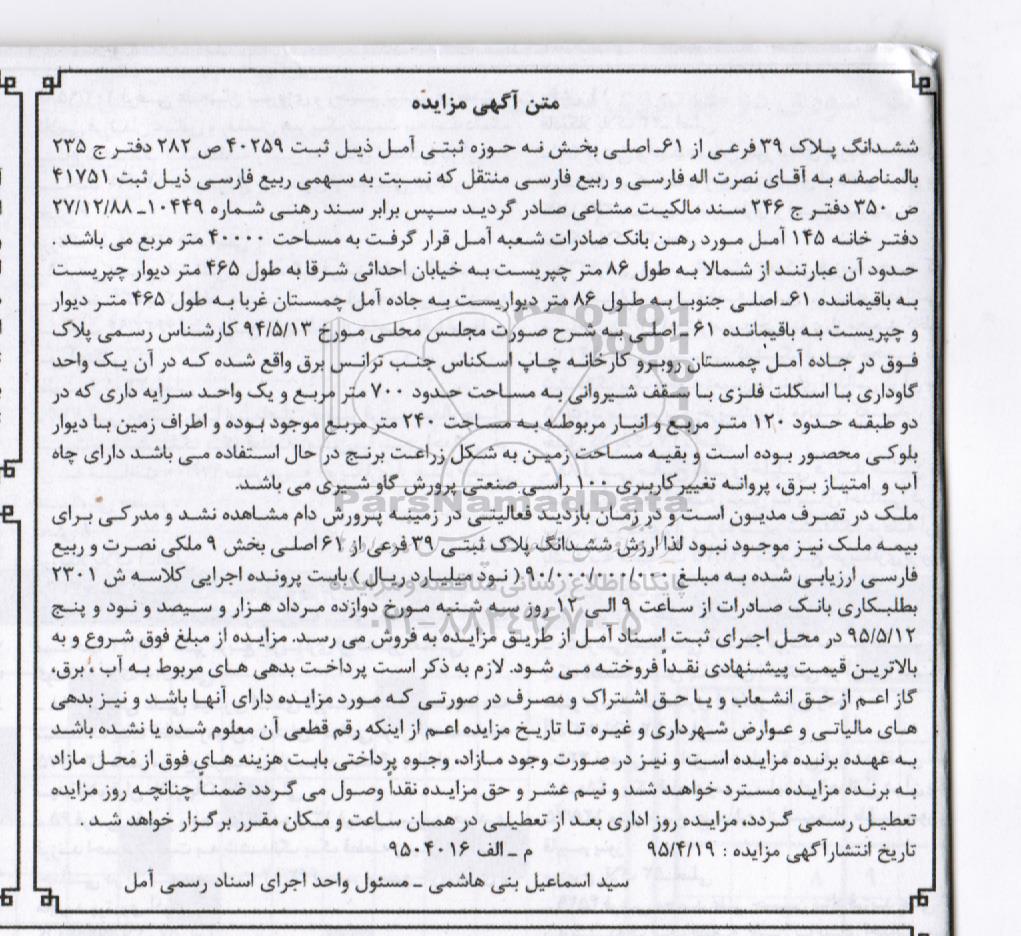 متن آگهی مزایده
ششدانگ پلاک ۳۹ فرعی از ۶۱ـ اصلی بخش نه حوزه ثبتی آمل ذیل ثبت ۴۰۲۵۹ ص ۲۸۲ دفتر ج ۲۳۵
بالمناصفه به آقای نصرت اله فارسی و ربیع فارسی منتقل که نسبت به سهمی ربیع فارسی ذیل ثبت ۴۱۷۵۱
ص ۳۵۰ دفتر ج ۲۴۶ سند مالکیت مشاعی صادر گردید سپس برابر سند رهنی شماره ۱۰۴۴۹ـ ۲۷/۱۲/۸۸
دفتر خانه ۱۴۵ آمل مورد رهن بانک صادرات شعبه آمل قرار گرفت به مساحت ۴۰۰۰۰ متر مربع می باشد.
حدود آن عبارتند از شمالا به طول ۸۶ متر چپریست به خیابان احداثی شرقا به طول ۴۶۵ متر دیوار چپریست
به باقیمانده ۶۱ـ اصلی جنوبا به طول ۸۶ متر دیواریست به جاده آمل چمستان غربا به طول ۴۶۵ متر دیوار
و چپریست به باقیمانده ۶۱ ـ اصلی به شرح صورت مجلس محلی مورخ ۹۴/۵/۱۳ کارشناس رسمی پلاک
فوق در جاده آمل چمستان روبرو کارخانه چاپ اسکناس جنب ترانس برق واقع شده که در آن یک واحد
گاوداری با اسکلت فلزی با سقف شیروانی به مساحت حدود ۷۰۰ متر مربع و یک واحد سرایه داری که در
دو طبقه حدود ۱۲۰ متر مربع و انبار مربوطه به مساحت ۲۴۰ متر مربع موجود بوده و اطراف زمین با دیوار
بلوکی محصور بوده است و بقیه مساحت زمین به شکل زراعت برنج در حال استفاده می باشد دارای چاه
آب و امتیاز برق، پروانه تغییر کاربری ۱۰۰ راسی صنعتی پرورش گاو شیری می باشد
ملک در تصرف مدیون است و در زمان بازدید فعالیتی در زمینه پرورش دام مشاهده نشد و مدرکی برای
بیمه ملک نیز موجود نبود لذا ارزش ششدانگ پلاک ثبتی ۳۹ فرعی از ۶۱ اصلی بخش ۹ ملکی نصرت و ربیع
فارسی ارزیابی شده به مبلغ ۹۰/۰۰۰/۰۰۰/۰۰۰ ( نود میلیارد ریال ) بابت پرونده اجرایی کلاسه ش ۲۳۰۱
بطلبکاری بانک صادرات از ساعت ۹ الی ۱۲ روز سه شنبه مورخ دوازده مرداد هزار و سیصد و نود و پنج
۹۵/۵/۱۲ در محل اجرای ثبت اسناد آمل از طریق مزایده به فروش می رسد. مزایده از مبلغ فوق شروع و به
بالاترین قیمت پیشنهادی نقداً فروخته می شود. لازم به ذکر است پرداخت بدهی های مربوط به آب ، برق،
گاز اعم از حق انشعاب و یا حق اشتراک و مصرف در صورتی که مورد مزایده دارای آنها باشد و نیز بدهی
های مالیاتی و عوارض شهرداری و غیره تا تاریخ مزایده اعم از اینکه رقم قطعی آن معلوم شده یا نشده باشد
به عهده برنده مزایده است و نیز در صورت وجود مازاد، وجوه پرداختی بابت هزینه های فوق از محل مازاد
به برنده مزایده مسترد خواهد شد و نیم عشر و حق مزایده نقداً وصول می گردد ضمناً چنانچه روز مزایده
تعطیل رسمی گردد، مزایده روز اداری بعد از تعطیلی در همان ساعت و مکان مقرر برگزار خواهد شد.
تاریخ انتشار آگهی مزایده : ۹۵/۴/۱۹ م ـ الف ۹۵۰۴۰۱۶
سید اسماعیل بنی هاشمی ـ مسئول واحد اجرای اسناد رسمی آمل
ParsNamadData
پایگاه اطلاع رسانی مناقصه و مزایده
۰۲۱-۸۸۳۴۹۶۷۰-۵